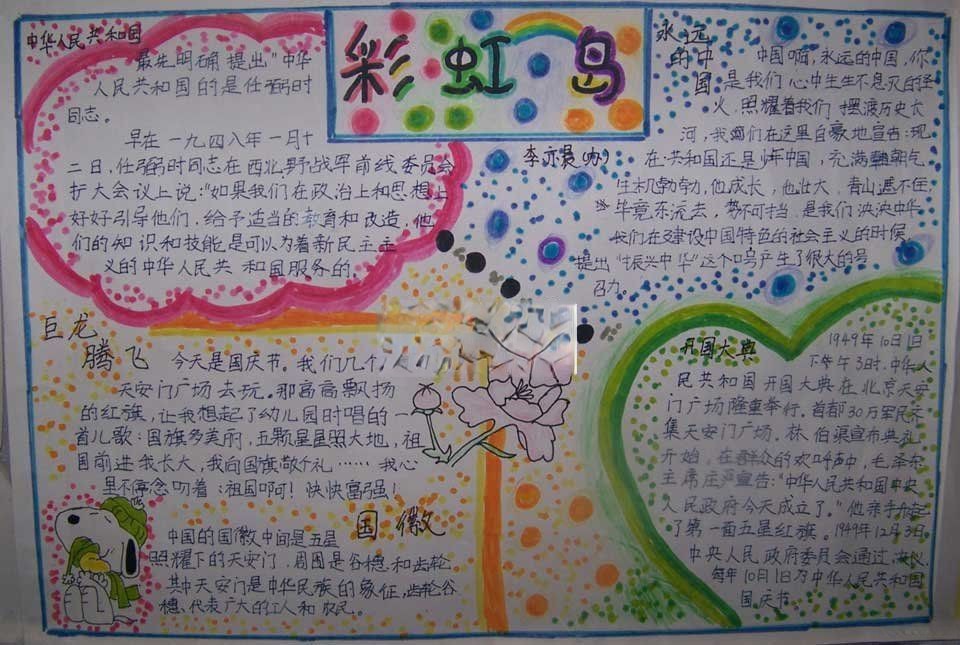 彩虹岛
中华人民共和国
最先明确提出"中华
人民共和国的是任弼时
同志。
早在一九四八年一月十
二日,任弼时同志在西北野战军前线委员会
扩大会议上说:"如果我们在政治上和思想上
好好引导他们,给予适当的教育和改造,他
们的知识和技能是可以为着新民主主
义的中华人民共和国服务的
李亦
(办)
永远
的中
国
中国啊,永远的中国,你
是我们心中生生不息灭的
火,照耀着我们摆渡历史长
河,我们在这里自豪地宣告:现
在共和国还是少年中国,充满朝气
生机勃勃,他成长,他壮大,青山遮不住,
毕竟东流去,势不可挡,是我们泱泱中华
我们在建设中国特色的社会主义的时候
提出"振兴中华"这个口号产生了很大的号
召力。
巨龙
腾飞
今天是国庆节。我们几个
天安门广场去玩。那高高飘扬
的红旗,让我想起了幼儿园时唱的一
首儿歌:国旗多美丽,五颗星星照大地,祖
国前进我长大,我向国旗敬个礼……我心
里不停念叨着:祖国啊!快快富强!
开国大典
1949年10月1日
下午3时,中华人
民共和国开国大典在北京天安
门广场隆重举行。首都30万军民齐
集天安门广场。林伯渠宣布典礼
开始,在群众的欢呼声中,毛泽东
主席庄严宣告:"中华人民共和国中央
人民政府今天成立了。"他亲手升起
了第一面五星红旗。1949年12月3日,
中央人民政府委员会通过决议,
每年10月1日为中华人民共和国
国庆节
国徽
中国的国徽中间是五星
照耀下的天安门,周围是谷穗和齿轮
其中天安门是中华民族的象征,齿轮谷
穗、代表广大的工人和农民。